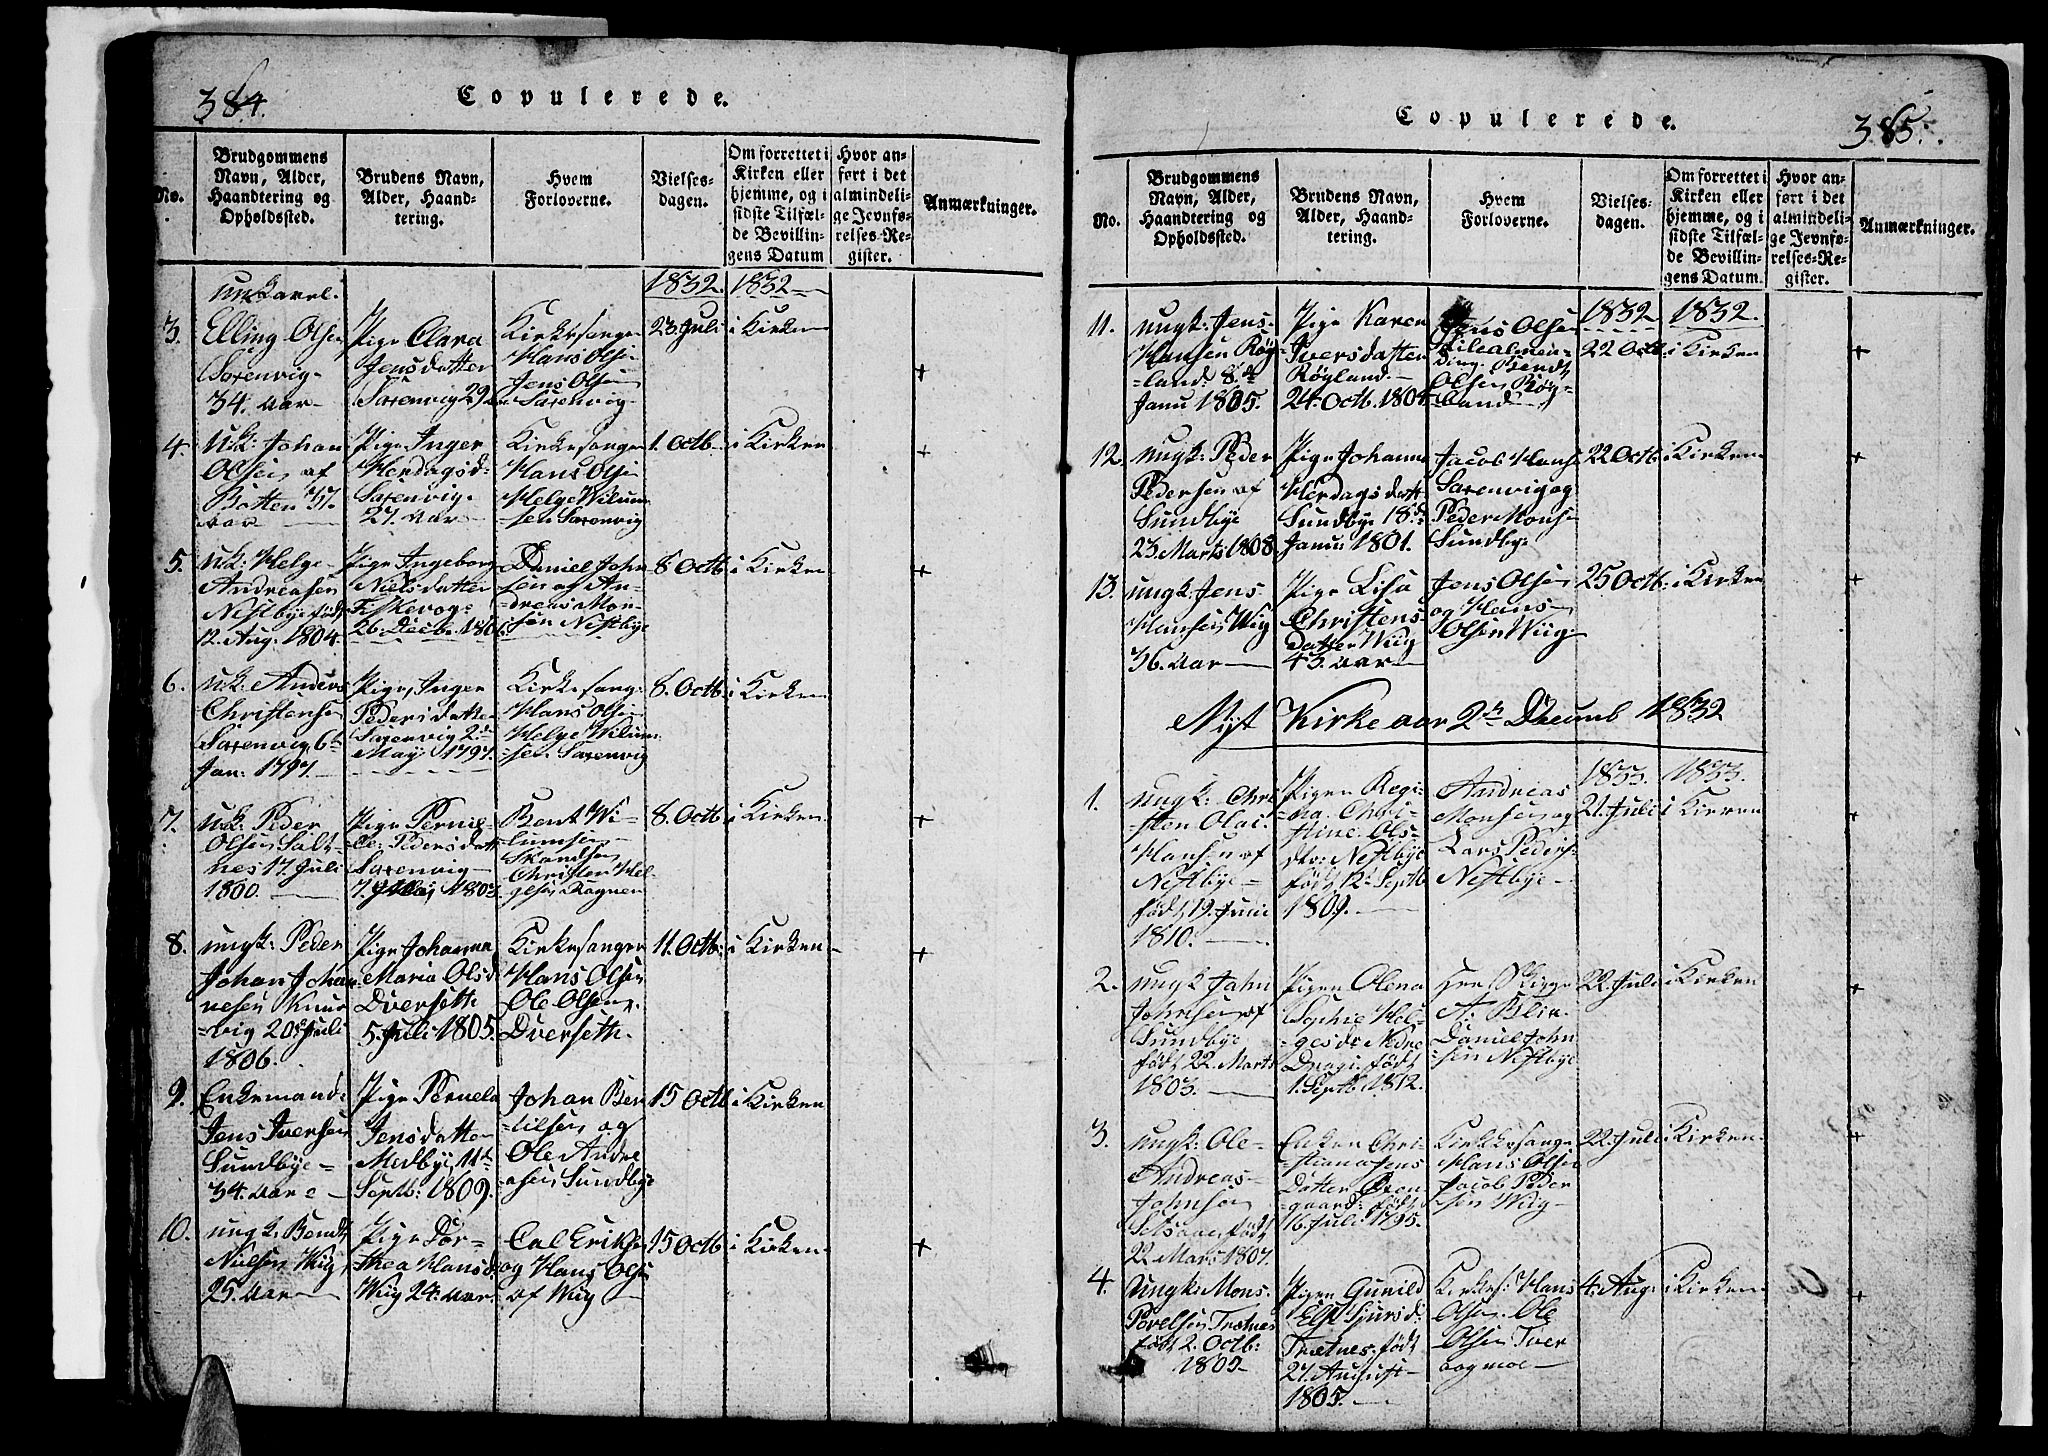 384.
Copulerede.
No.
Brudgommens
Navn, Alder,
Haandtering og
Opholdssted.
Brudens Navn,
Alder, Haand-
tering.
Hvem
Forloverne.
Vielses-
dagen.
Om forrettet i
Kirken eller
hjemme, og i
sidste Tilfæl-
de Bevillin-
gens Datum
Hvor an-
ført i det
almindeli-
ge Jevnfø-
relses-Re-
gister.
Anmærkninger.
1832. 1832
3.
ungkarel.
Elling Olsen
Saxenvig
34. Aar
Pige Clara
Jensdatter
Saxenvig 29
Kirkesanger
Hans Olsen
Jens Olsen
Saxenvig
23. Juli
i Kirken
+
4.
U.k: Johan
Olsen af
Botten 37.
Aar
Pige Inger
Herdagsd:
Saxenvig
27. Aar
Kirkesanger
Hans Olsen
Helge Wilum
sen Saxenvig
1. Octb
i Kirken
+
5.
U.k: Helge
Andreasen
Nestbye født
12. Aug. 1804.
Pige Ingebor
Nielsdatter
Fiskevog
26. Decbr.
Daniel John
sen og An-
dreas Mon-
sen Nestbye
8 Octb
i Kirken
+
6.
U.k: Anders
Christensen
Saxenvig 6te
Jan: 1797.
Pige Inger
Pedersdatter
Saxenvig 2d
May 1797.
Kirkesang:
Hans Olsen
Helge Wilum
sen Saxenvig
8. Octb
i Kirken
7.
U.k: Peder
Olsen Salt-
nes 17. Juli
1800.
Pige Pernil-
le Pedersdatt
Saxenvig
7. 1803.
Bent Wi-
lumsen
Skandsen
Christen Hel-
gesen Rogner
8. Octb
i Kirken
+
8.
ungk: Peder
Johan Johan
nesen Knur
=vig 20de Juli
1806.
Pige Johanna
Maria Olsd
Dverseth
5. Juli 1805.
Kirkesanger
Hans Olsen
Ole Olsen
Dverseth.
11. Octb:
i Kirken
+
9.
Enkemand:
Jens Iversen
Sundbye
34. Aar
Pige Pernela
Jensdatter
Medbye 11te
Septb: 1809.
Johan Ber
=tilsen og
Ole Andre
=asen Sundbye
15 Octb
i Kirken
10.
ungk. Bendt
Nielsen Wiig
25. Aar
Pige Dor-
thea Hansd
Wiig 24. Aar.
Eriksen
og Hans Olsen
af Wiig
15 Octb
i Kirken
+
385.
Copulerede.
No.
Brudgommens
Navn, Alder,
Haandtering og
Opholdssted.
Brudens Navn,
Alder, Haand-
tering.
Hvem
Forloverne.
Vielses-
dagen.
Om forrettet i
Kirken eller
hjemme, og i
sidste Tilfæl-
de Bevillin-
gens Datum.
Hvor an-
ført i det
almindeli-
ge Jevnfø-
relses-Re-
gister.
Anmærkninger.
1832 1832.
11.
ungk: Jens
Hansen Røg
=land. 8.de
Janu 1805.
Pige Karen
Iversdatter
Røgland
24. Octb. 1804
Jens Olsen
Bendt
Olsen Røg-
land
22 Octb
i Kirken
+
12.
ungk: Peder
Pedersen af
Sundbye
23 Marts 1808
Pige Johanna
Herdagsdatt
Sundbye 18de
Janu: 1801.
Jacob Hans
Saxenvig og
Peder Monsen
Sundby
22 Octb
i Kirken
+
13.
ungk. Jens
Hansen Wiig
36. Aar
Pige Lisa
Christens-
datter Wiig
43. Aar
Jens Olsen
og Hans
Olsen Wiig
25 Octb:
i Kirken
+
Nyt Kirkeaar 2den Decemb 1832
1833. 1833.
1.
ungk: Chri
=sten Olai
Hansen af
Nestbye
født 19. Juni
1810.
Pigen Regi-
na Chri-
stine Ols-
dtr: Nestbye
født 12te Septb
1809.
Andreas
Monsen og
Lars Peders
Nestbye
21. Juli
i Kirken
+
2.
ungk. John
Johnsen af
Sundbye
født 22. Marts
1803.
Pigen Olena
Sophie Hel-
gesdr Nedre
født
1. Septb. 1812.
Herr
A. Blix
Daniel John
=sen Nestbye
22. Juli
i Kirken
+
3.
ungk: Ole
Andreas
Johnsen
født
22. Mars 1807.
Enken Chri-
=stiana Jens
Datter
født
16. Juli 1795.
Kirkesanger
Hans Olsen
Jacob Peder
sen Wiig
22. Juli
i Kirken
+
4.
Ungk: Mons
Povelsen Trætnes
født 2. Octb:
1809
Pigen Gunild
Else Sjursd:
Trætnes født
27. August
1805.
Kirkes: Hans
Olsen. Ole
Olsen Tver
aagmoe
4. Aug:
i Kirken
+